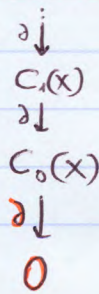 ⋮
∂ ↓
C₁(x)
∂ ↓
C₀(x)
∂ ↓
0